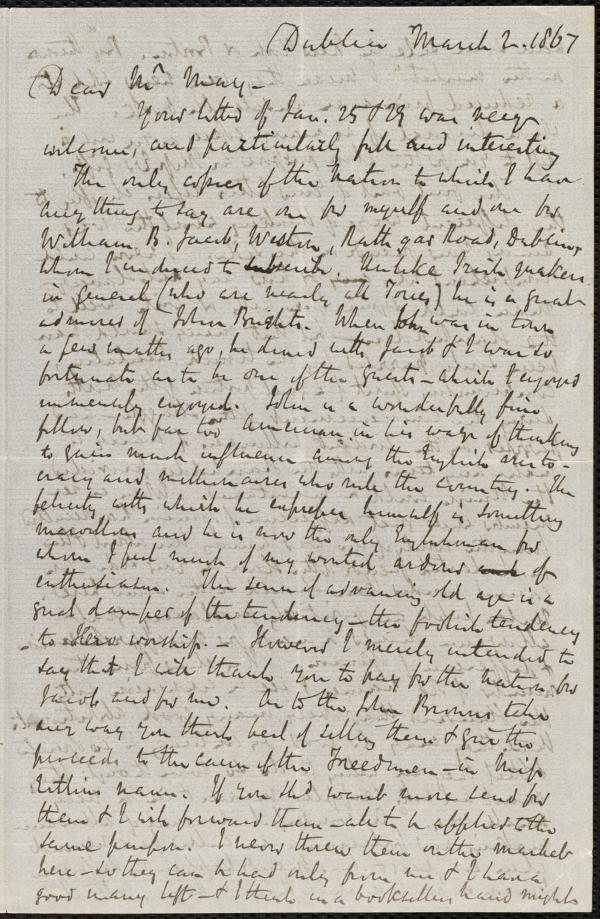 Dublin March 2. 1867
Dear Mr May -
Your letter of Jan. 25 & 29 was very
welcome, and particularly full and interesting
The only copies of the Nation to which I have
any thing to say are one for myself and one for
William B. Jacob, Weston, Rathgar Road, Dublin,
whom I induced to subscribe. Unlike Irish quakers
in general (who are nearly all Tories) he is a great
admirer of John Bright. When John was in town
a few months ago, he dined with Jacob & I was so
fortunate as to be one of the guests - which I enjoyed
immensely enjoyed. John is a wonderfully fine
fellow, but far too American in his ways of thinking
to gain much influence among the English aristo-
cracy and millionaires who rule the country. The
felicity with which he expresses himself is something
marvellous and he is now the only Englishman for
whom I feel much of my wonted ardour and of
enthusiasm. The sense of advancing old age is a
great damper of the tendency - the foolish tendency
to Hero worship. - However I merely intended to
say that I will thank you to pay for the Nation for
Jacob and for me. As to the John Browns take
any way you think best of selling them & give the
proceeds to the cause of the Freedmen - in Miss
Estlin's name. If you shd want more send for
them & I will forward them - all to be applied to the
same purpose. I never threw them on the market
here - so they can be had only from me & I have a
good many left - & I think in a booksellers hand might